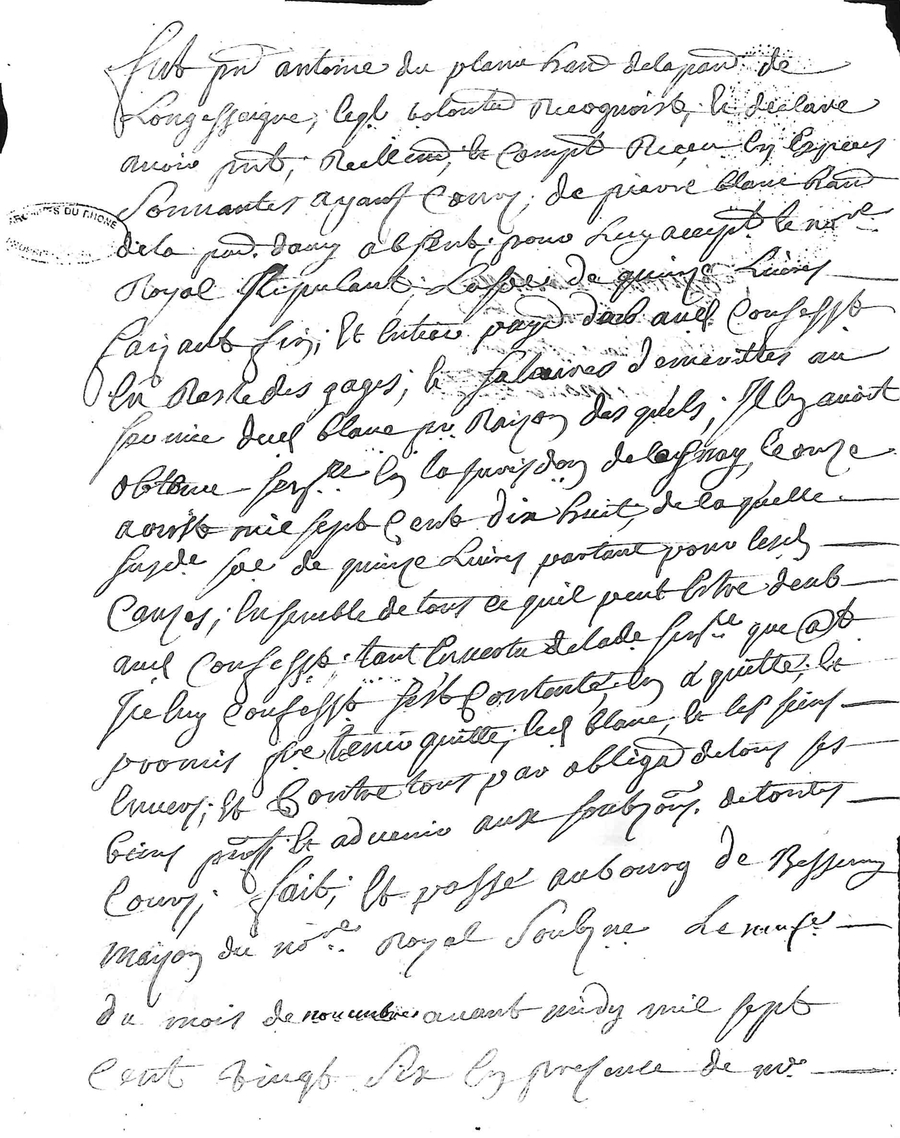 fut pnt antoine du plaine hand dela parr de
Longessaigne, leql volontes Recognoist, et declare
avoir Reellemt, et Compt Receu en Especes
Sonnantes ayant Cours, de pierre blanc hand
dela parr. absent, pour Luy accept. le nore
ARCHIVES DU RHONE
Royal Stipulant, La soe de quinze Livres
faizant fin, et entiere paye dud confesst
En Reste des gages, et salaires d'emerittes au
service dud blanc pr Raizon des quels, Il en avoit
obtenu sensse en la Jurisdon de le onze
aoust mil sept Cent dix huit, de laquelle
susde soe de quinze Livres partant pour lesd
Causes, Ensemble de tous ce quil peut Estre deub
aud Confesst. tant En vertu de lade sensse que
Iceluy Confesst s'est Contenté, en a quitté, et
promis fre tenir quitte, led blanc, et les siens
Envers, et Contre tous par obligaon de tous ses
biens pnts et advenir aux soubzons. de toutes
Cours, fait, et passé au bourg de Bessenay
maizon du nore Royal Soubzne Le neufe
du mois de novembre avant midy mil sept
Cent vingt six En presence de mre